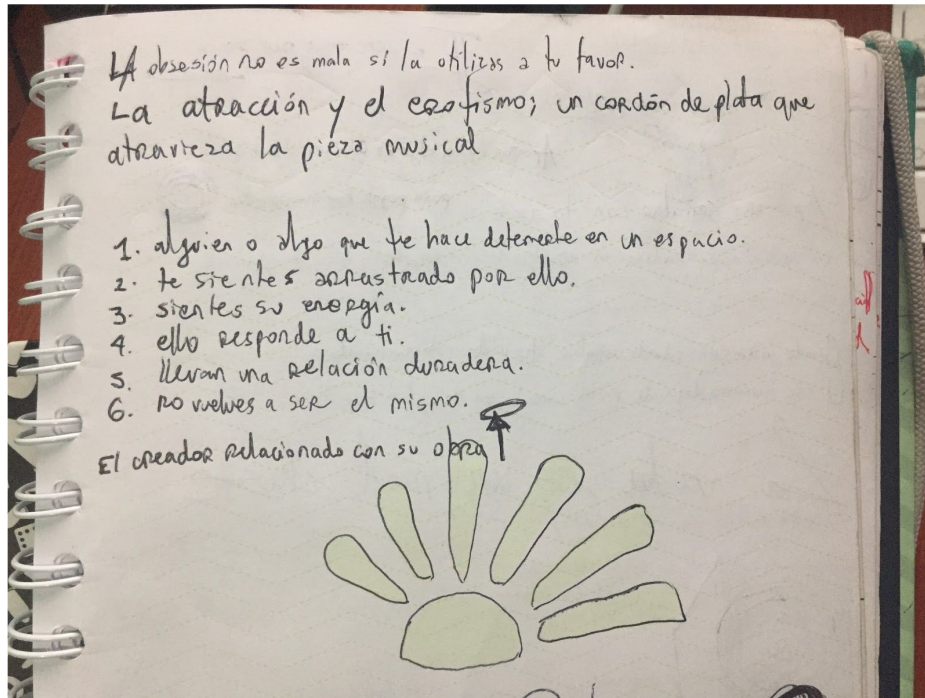 LA obsesión no es mala si la utilizas a tu favor.
La atracción y el erotismo; un cordón de plata que
atravieza la pieza musical
1. alguien o algo que te hace detenerte en un espacio.
2. te sientes arrastrado por ello.
3. sientes su energía.
4. ello responde a ti.
5. llevan una relación duradera.
6. no vuelves a ser el mismo.
El creador relacionado con su obra